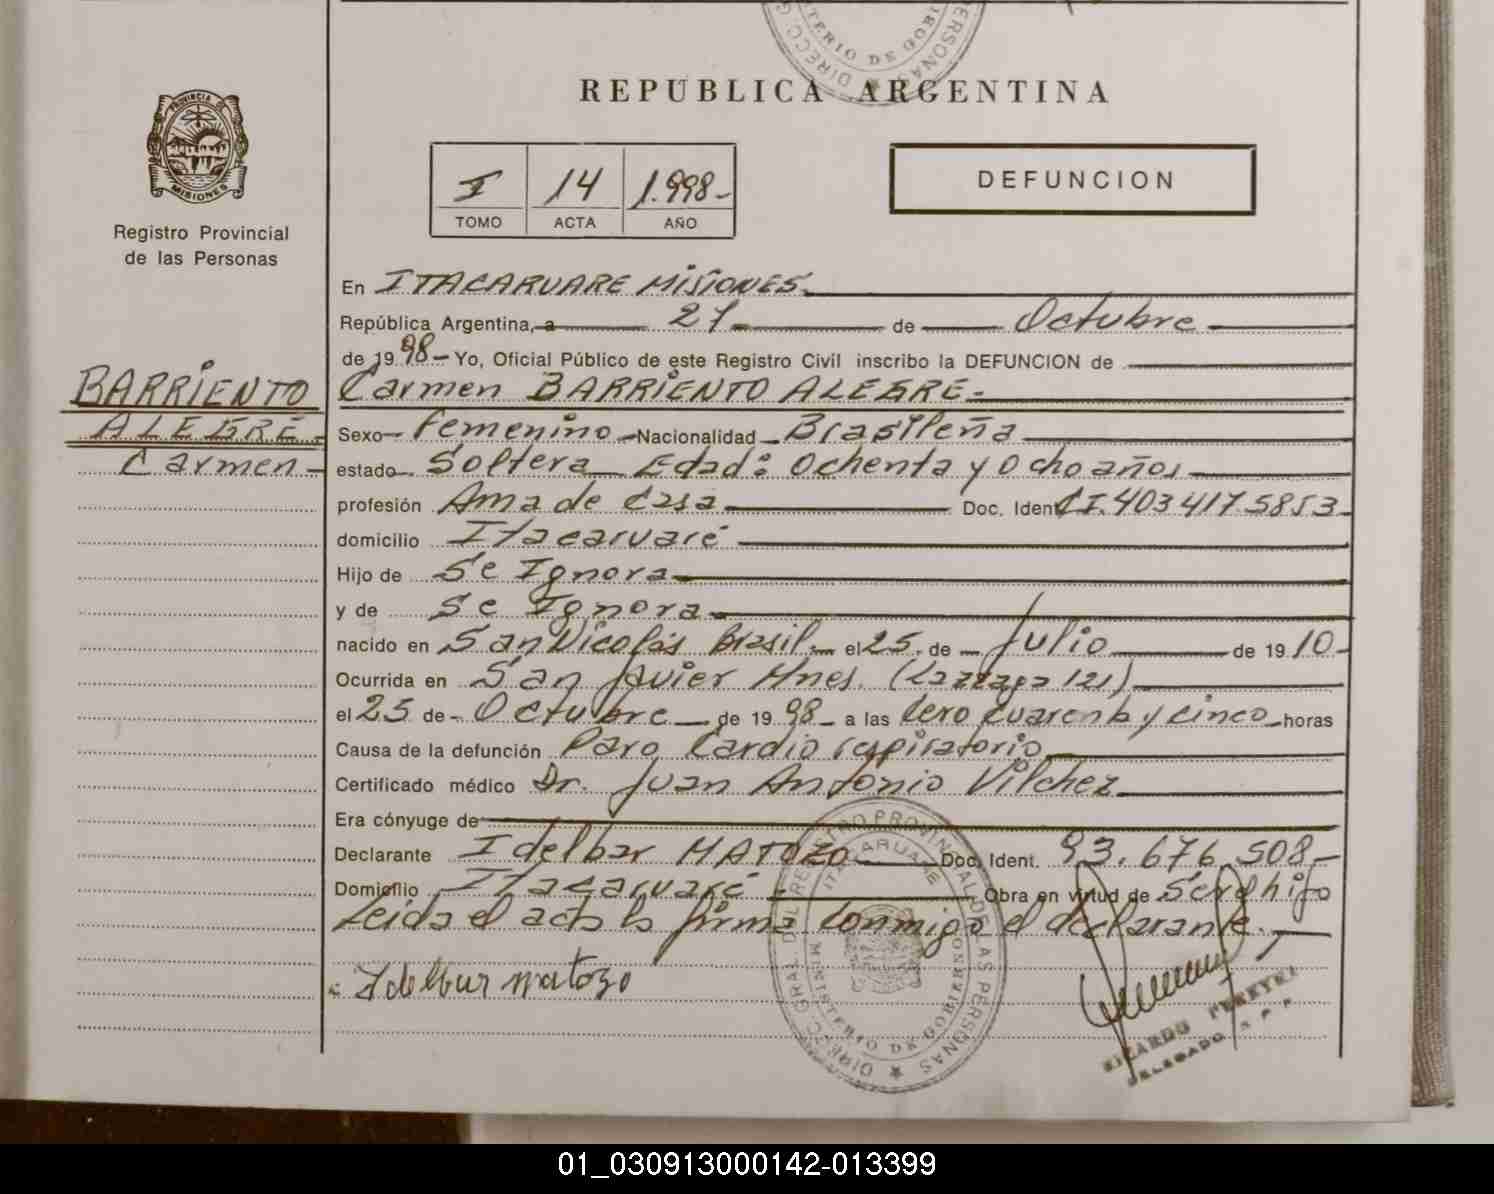 REPUBLICA ARGENTINA
PROVINCIA DE
MISIONES
Registro Provincial
de las Personas
I 14 1.998-
TOMO ACTA AÑO
DEFUNCION
BARRIENTO
ALEGRE-
Carmen-
En ITACARUARE MISIONES.
República Argentina, a 27 de Octubre
de 1998- Yo, Oficial Público de este Registro Civil inscribo la DEFUNCION de
Carmen BARRIENTO ALEGRE.-
Sexo Femenino Nacionalidad Brasileña
estado Soltera Edad: Ochenta y Ocho años
profesión Ama de Casa Doc. Ident CI. 403 417 5853
domicilio Itacaruaré
Hijo de Se Ignora
y de Se Ignora
nacido en San Nicolás Brasil. el 25. de Julio de 1910-
Ocurrida en San Javier Mnes.
el 25 de Octubre de 1998 a las Cero Cuarenta y Cinco horas
Causa de la defunción Paro Cardio respiratorio
Certificado médico Dr. Juan Antonio Vilchez
Era cónyuge de
Declarante Idelbar MATOZO Doc. Ident. 93.676.508-
Domicilio Itacaruaré Obra en virtud de Ser el hijo
Leida el acta la firma Conmigo el declarante.
Idelbar matozo
DIRECC. GRAL. DEL REGISTRO PROVINCIAL DE LAS PERSONAS
ITACARUARE
MINISTERIO DE GOBIERNO
RICARDO PEREYRA
DELEGADO R. P. P.
01_030913000142-013399